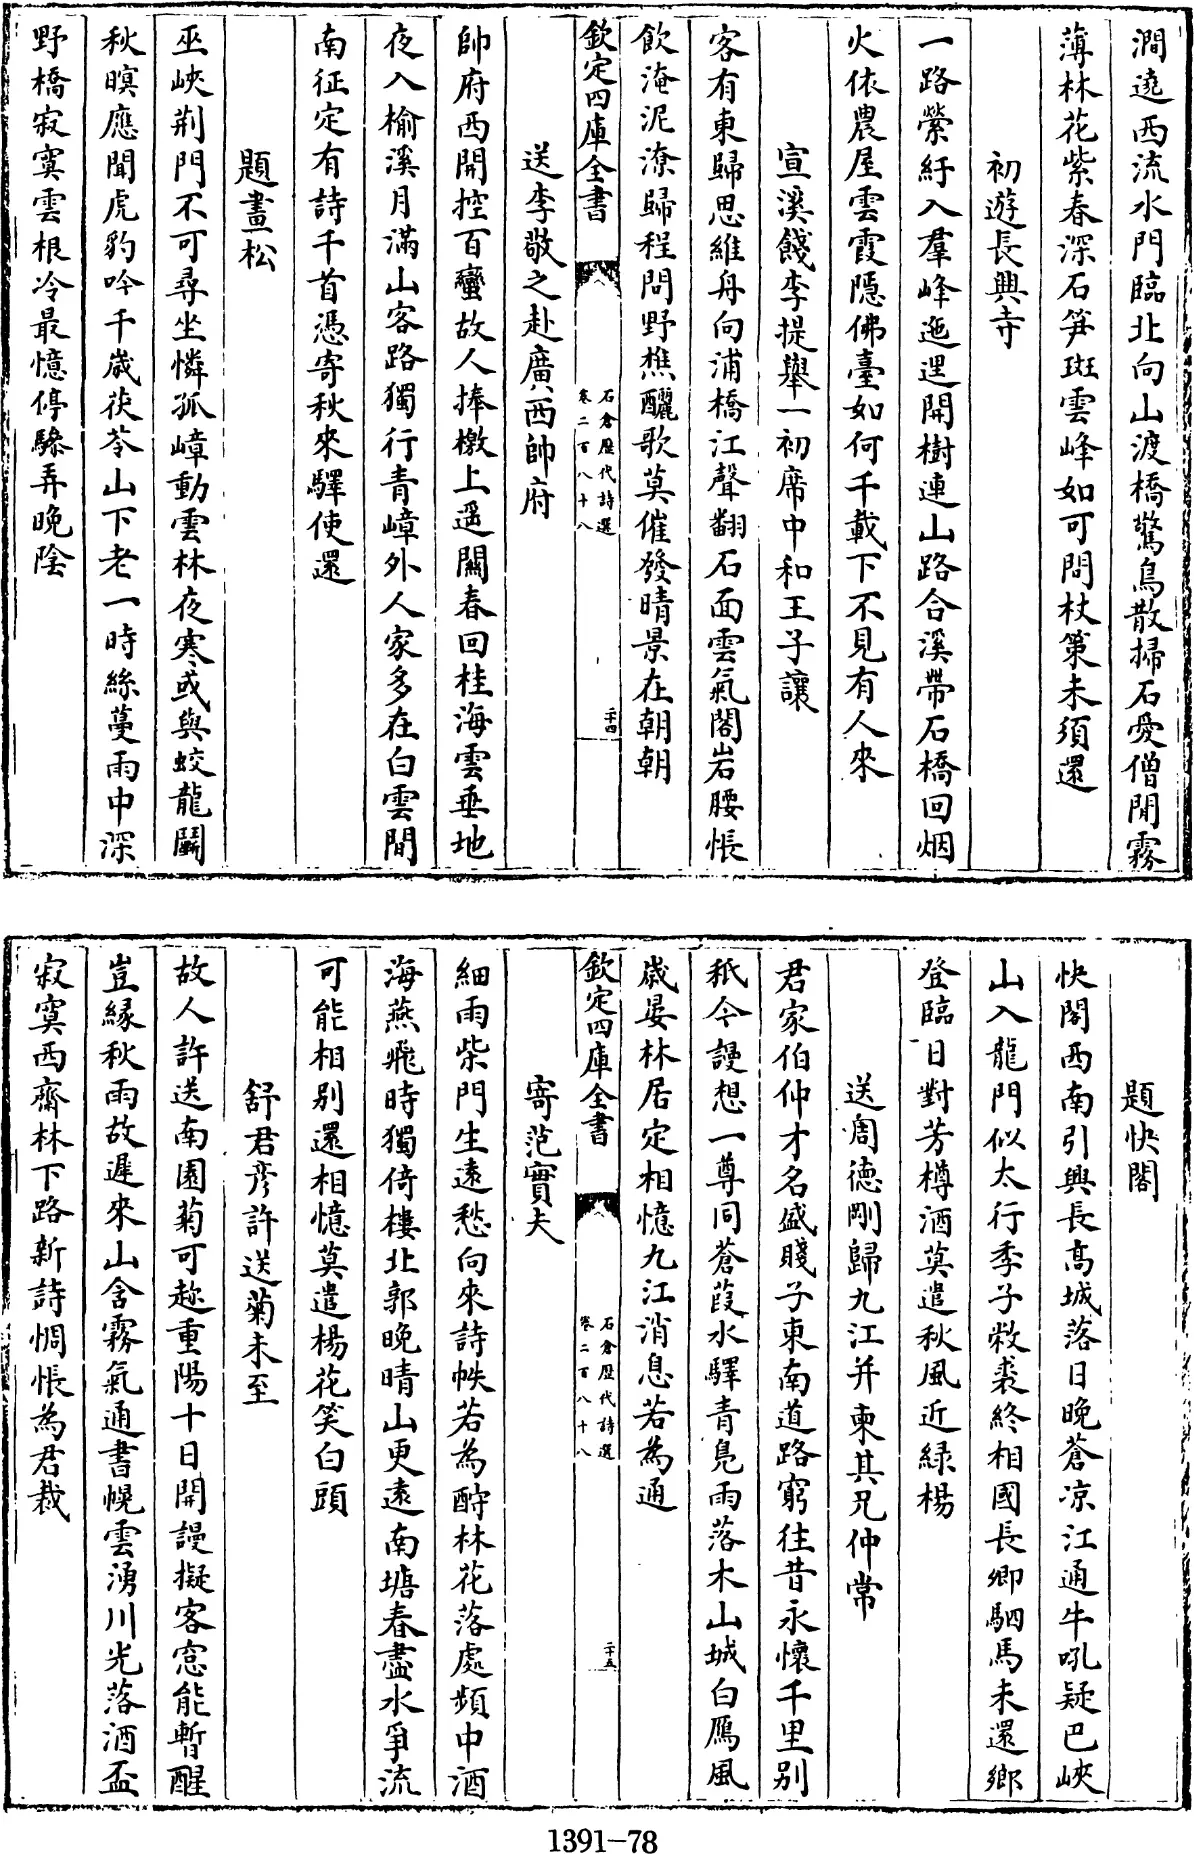 澗遶西流水門臨北向山渡橋驚鳥散掃石愛僧閒霧
薄林花紫春深石笋斑雲峰如可問杖策未須還
初遊長興寺
一路縈紆入羣峰迤邐開樹連山路合溪帶石橋回烟
火依農屋雲霞隱佛臺如何千載下不見有人來
宣溪餞李提舉一初席中和王子讓
客有東歸思維舟向浦橋江聲翻石面雲氣閣岩腰悵
飲淹泥潦歸程問野樵釃歌莫催發晴景在朝朝
欽定四庫全書
石倉歷代詩選
卷二百八十八
二十四
送李敬之赴廣西帥府
帥府西開控百蠻故人捧檄上遥關春回桂海雲垂地
夜入榆溪月滿山客路獨行青嶂外人家多在白雲間
南征定有詩千首憑寄秋來驛使還
題畫松
巫峽荆門不可尋坐憐孤嶂動雲林夜寒或與蛟龍鬭
秋暝應聞虎豹吟千歲茯苓山下老一時絲蔓雨中深
野橋寂寞雲根冷最憶停驂弄晚陰
題快閣
快閣西南引興長高城落日晚蒼凉江通牛吼疑巴峽
山入龍門似太行季子敝裘終相國長卿駟馬未還鄉
登臨日對芳樽酒莫遣秋風近緑楊
送周德剛歸九江并柬其兄仲常
君家伯仲才名盛賤子東南道路窮往昔永懷千里别
秖今謾想一尊同蒼葭水驛青鳧雨落木山城白鴈風
歲晏林居定相憶九江消息若為通
欽定四庫全書
石倉歷代詩選
卷二百八十八
二十五
寄范實夫
細雨柴門生遠愁向來詩帙若為酧林花落處頻中酒
海燕飛時獨倚樓北郭晚晴山更遠南塘春盡水爭流
可能相别還相憶莫遣楊花笑白頭
舒君彦許送菊未至
故人許送南園菊可趁重陽十日開謾擬客窓能暫醒
豈緣秋雨故遲來山舍霧氣通書幌雲湧川光落酒盃
寂寞西齋林下路新詩惆悵為君裁
1391-78